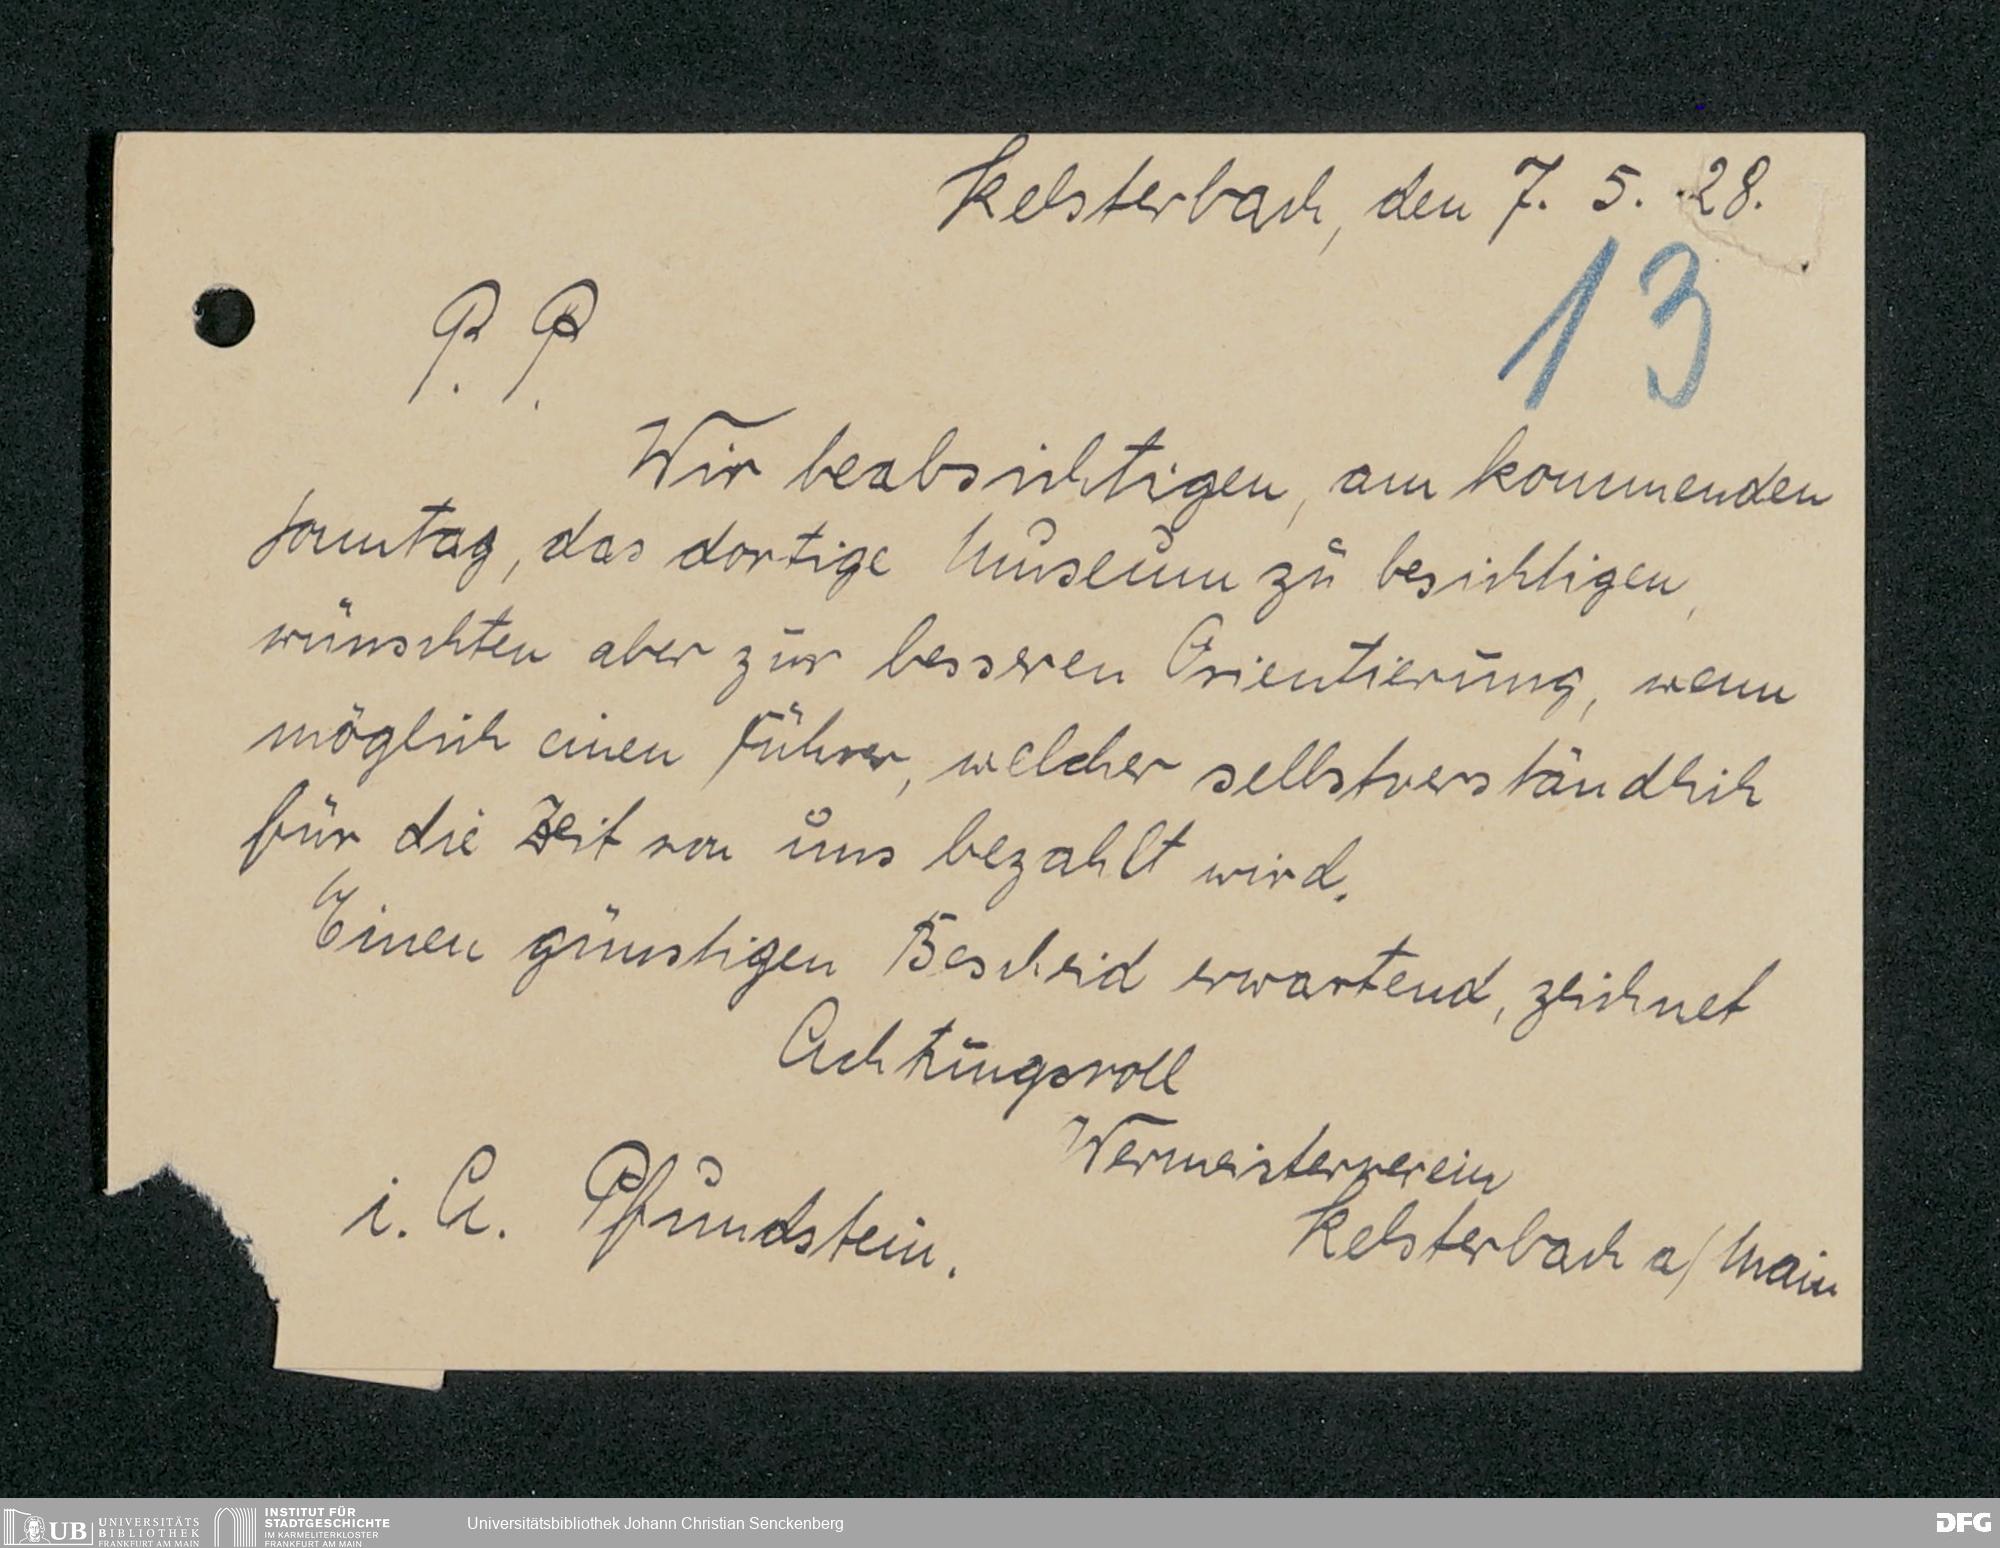 Kelsterbach, den 7. 5. 28.
13
P. P.
Wir beabsichtigen, am kommenden
Sonntag, das dortige Museum zu besichtigen,
wünschten aber zur besseren Orientierung, wenn
möglich einen Führer, welcher selbstverständlich
für die Zeit von uns bezahlt wird.
Einen günstigen Bescheid erwartend, zeichnet
Achtungsvoll
Wermeisterverein
Kelsterbach a/Main
i. A. Pfundstein.
UB UNIVERSITÄTS BIBLIOTHEK FRANKFURT AM MAIN
INSTITUT FÜR STADTGESCHICHTE IM KARMELITERKLOSTER FRANKFURT AM MAIN
Universitätsbibliothek Johann Christian Senckenberg
DFG